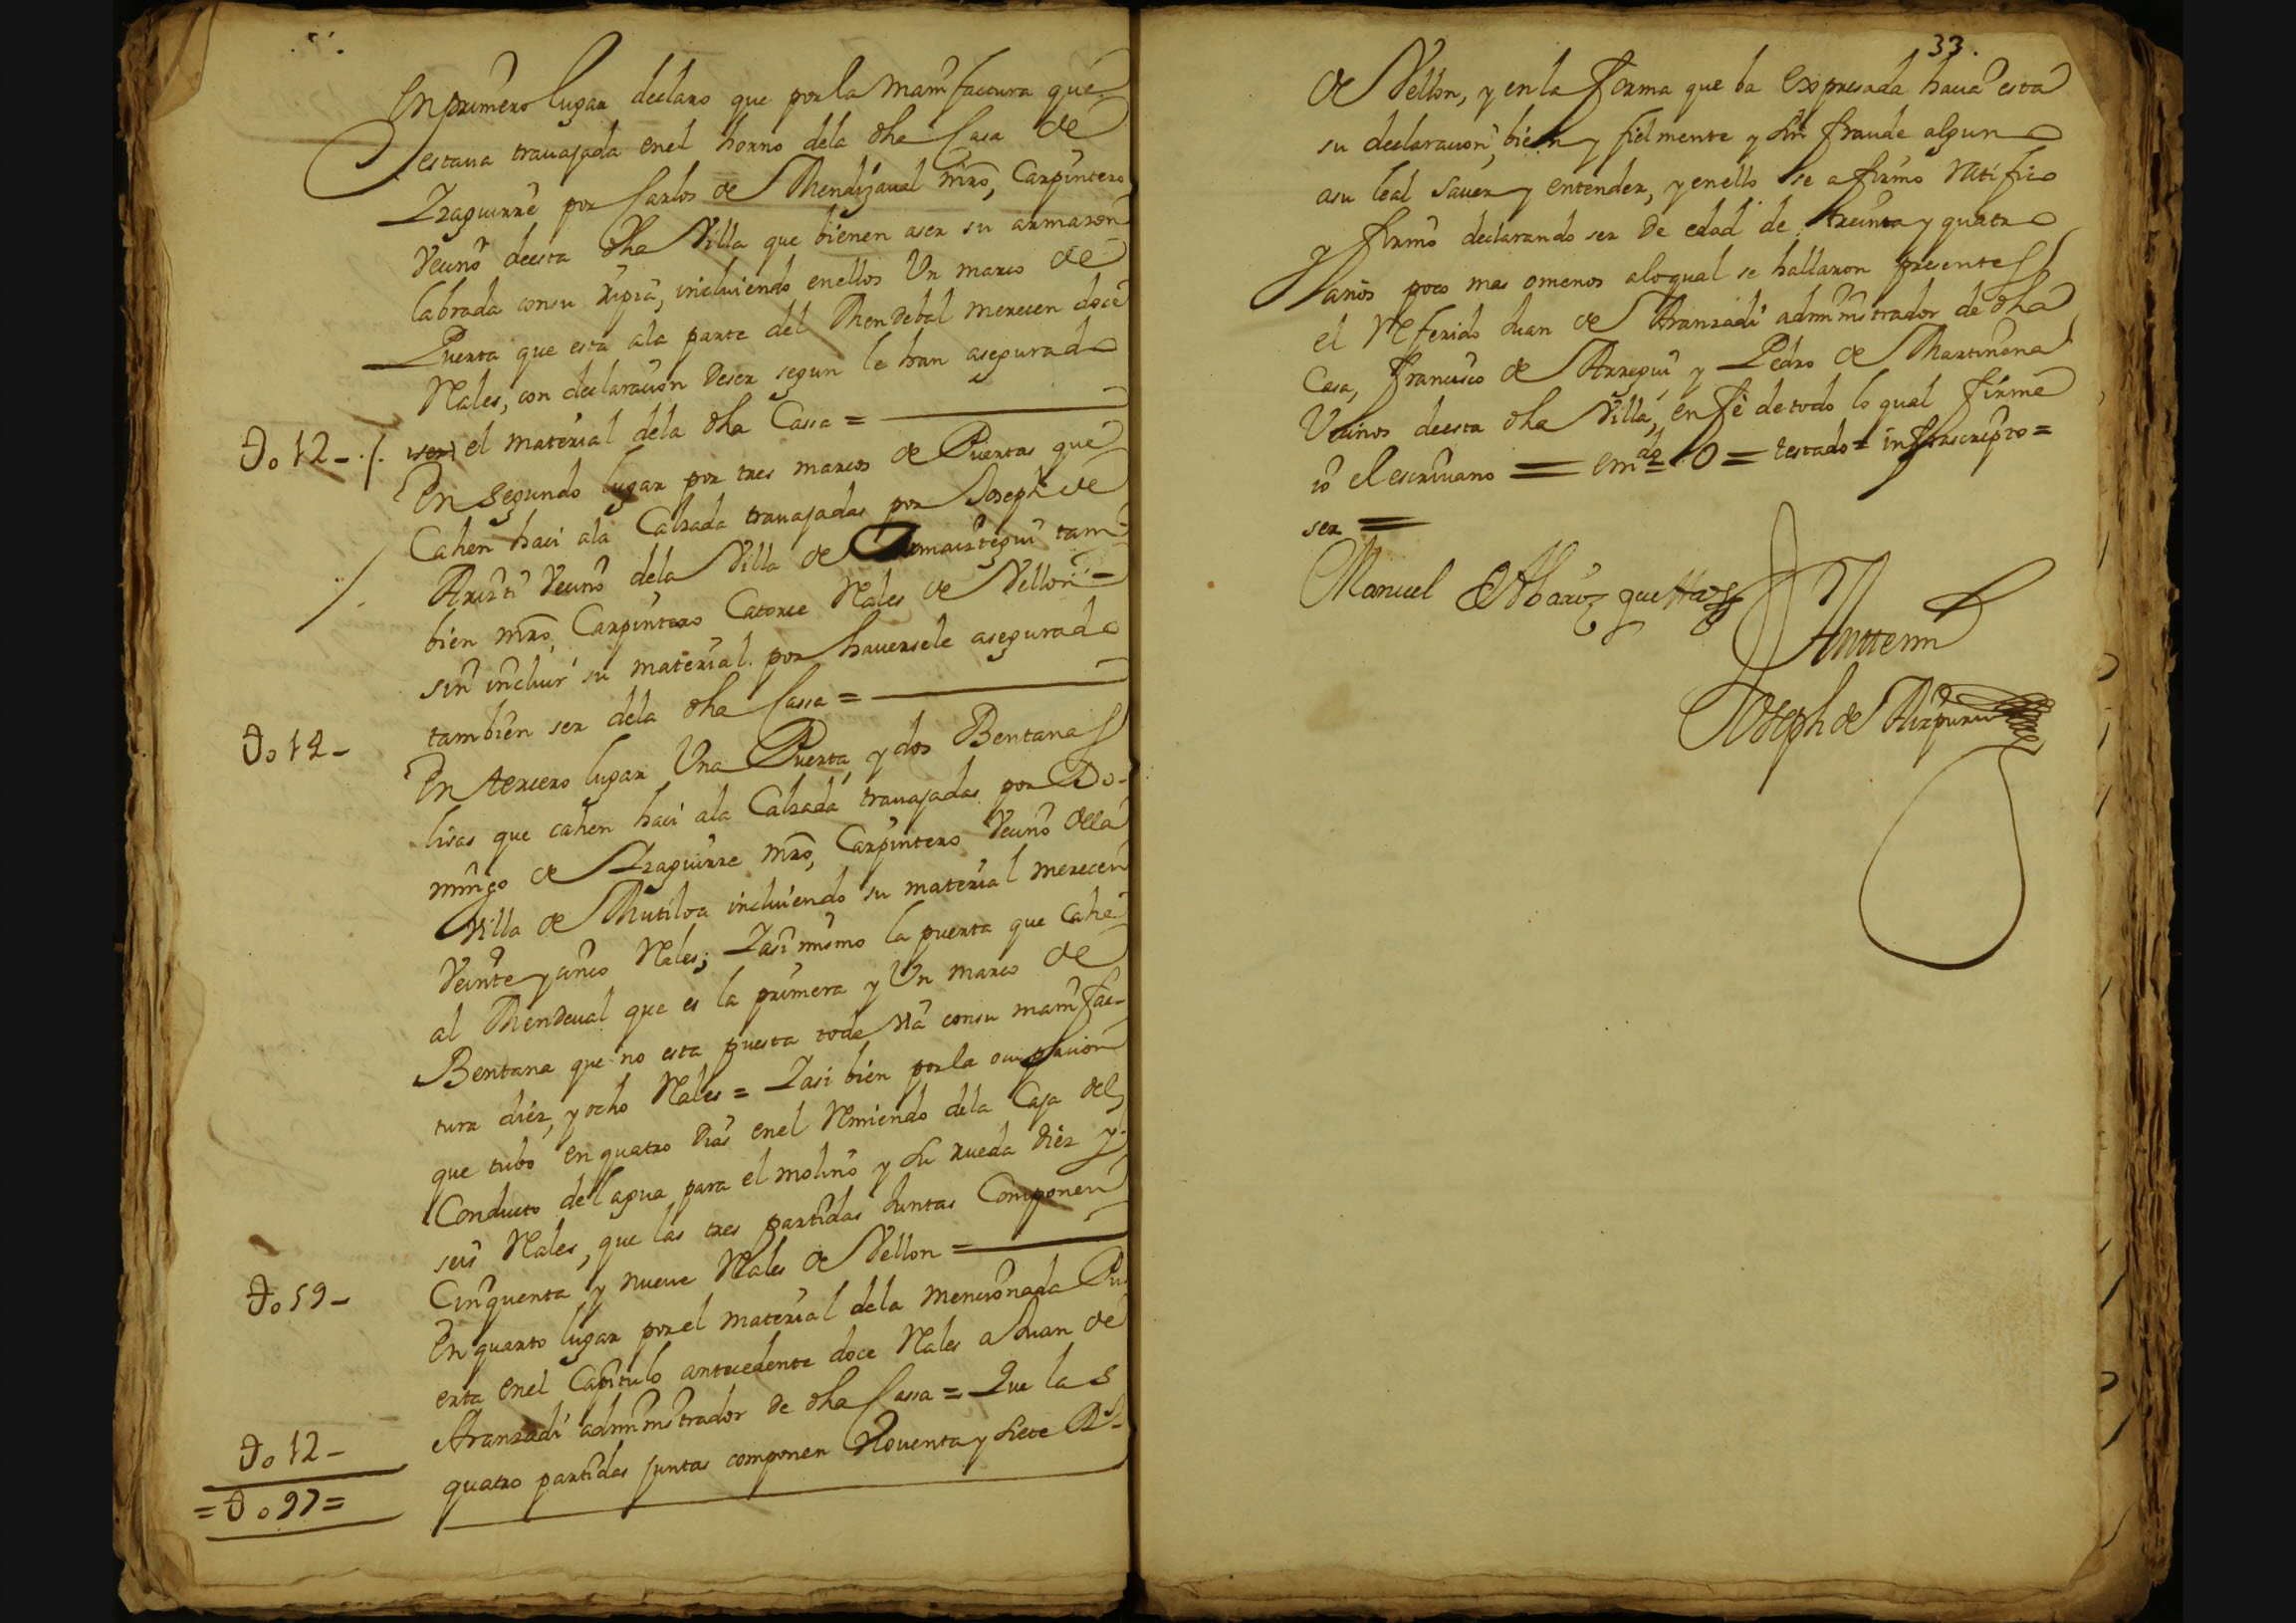 En primero lugar declaro que por la manifactura que
estaua trauajada en el horno dela dha Casa de
Yzaguirre por Carlos de Mendizaual mro, Carpintero
Vecino deesta dha Villa que bienen aser su armazon
labrada consu ripia, incluiendo enellos Un marco de
Puerta que esta ala parte del Mendebal merecen doce
Rales, con declaracion deser segun le han asegurado
Do 12 - ./. ser el material dela dha Cassa =
En Segundo lugar por tres marcos de Puertas que
Cahen haci ala Calzada trauajadas por Joseph de
Arizti Vecino dela Villa de Ormaiztegui tam
bien mro, Carpintero Catorce Rales de Vellon =
sin incluir su material por hauersele asegurado
Do 14 - tambien ser dela dha Cassa =
En tercero lugar Una Puerta y dos Bentanas
lisas que cahen haci ala Calzada trauajadas por Do-
mingo de Yzaguirre mro, Carpintero Vecino dela
Villa de Mutiloa incluiendo su material merecen
Veinte y cinco Rales; Yasi mismo la puerta que Cahe
al Mendeual que es la primera y Un marco de
Bentana que no esta puesta toda Via consu manifac-
tura diez, y ocho Rales = Yasi bien porla ocupacion
que tubo en quatro Dias enel Remiendo dela Caja del
Conducto del agua para el molino y su rueda Diez y
seis Rales, que las tres partidas Juntas Componen
Do 59 - Cinquenta y nueve Rales de Vellon =
En quarto lugar porel material dela mencionada Pu
erta enel Capitulo antecedente doce Rales a Juan de
Aranzadi administrador de dha Cassa = Que las
Do 12 - quatro partidas juntas componen Noventa y siete Rs
= Do 97 =
33.
de Vellon, y enla forma que ba Expresada hacia esta
su declaracion, bien y fielmente y sin fraude alguno
asu leal Sauer y entender, y enello se afirmo Ratifico
y firmo declarando ser de edad de treinta y quatro
años poco mas omenos aloqual se hallaron presentes
el Referido Juan de Aranzadi administrador de dha
Casa, Francisco de Arregui y Pedro de Martinena
Vecinos deesta dha Villa, en fe detodo lo qual firme
io el escriuano = emdo = O = testado = infrascripto =
ser =
Manuel
Antemi
Joseph de Aizpuru